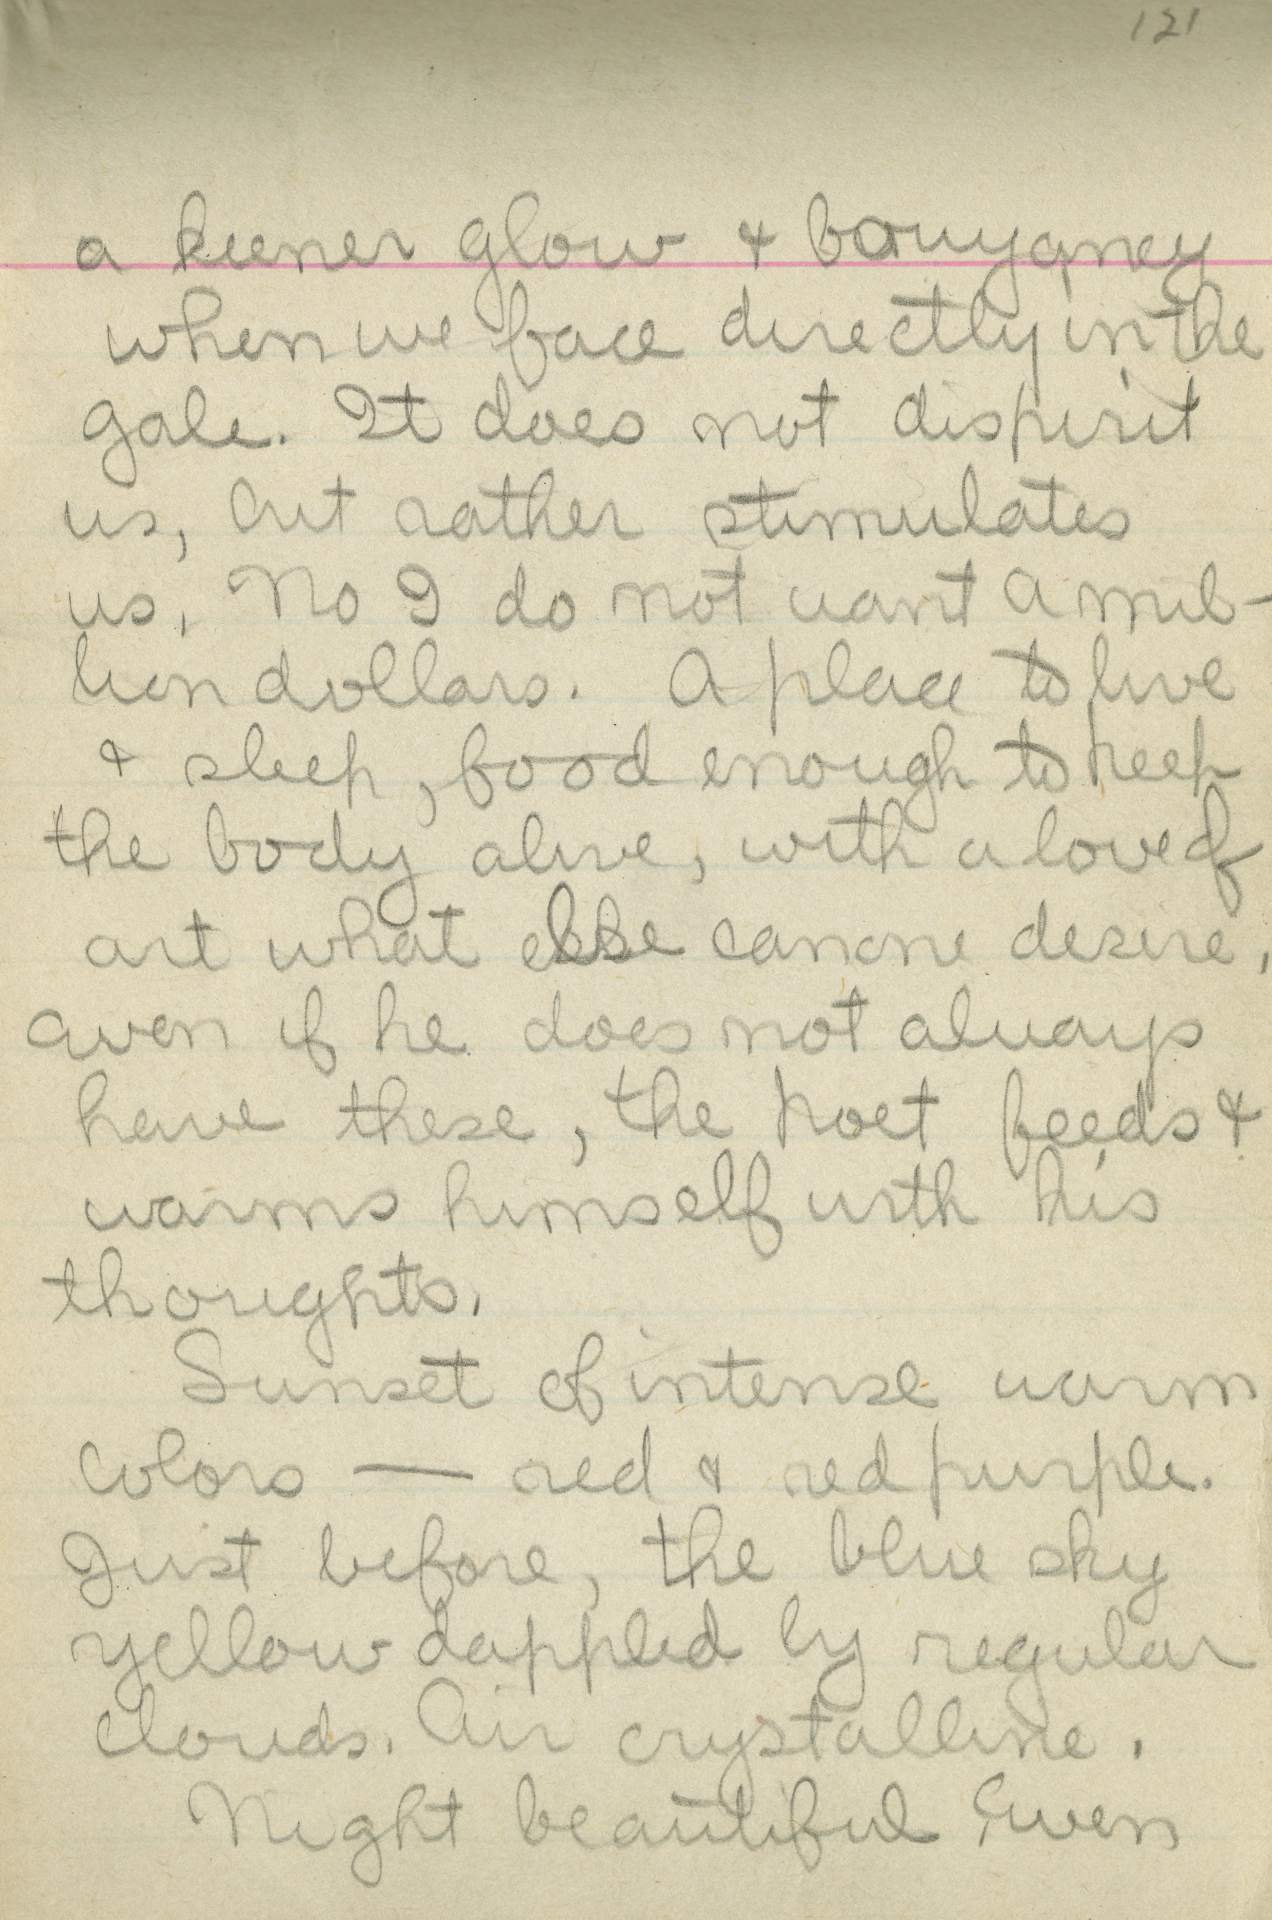 121
a keener glow & bouyancy
when we face directly in the
gale. It does not dispirit
us, but rather stimulates
us. No I do not want a mil-
lion dollars. A place to live
& sleep, food enough to keep
the body alive, with a love of
art what else can one desire,
even if he does not always
have these, the poet feeds &
warms himself with his
thoughts.
Sunset of intense warm
colors — red & red purple.
Just before, the blue sky
yellow dappled by regular
clouds. Air crystalline.
Night beautiful Even